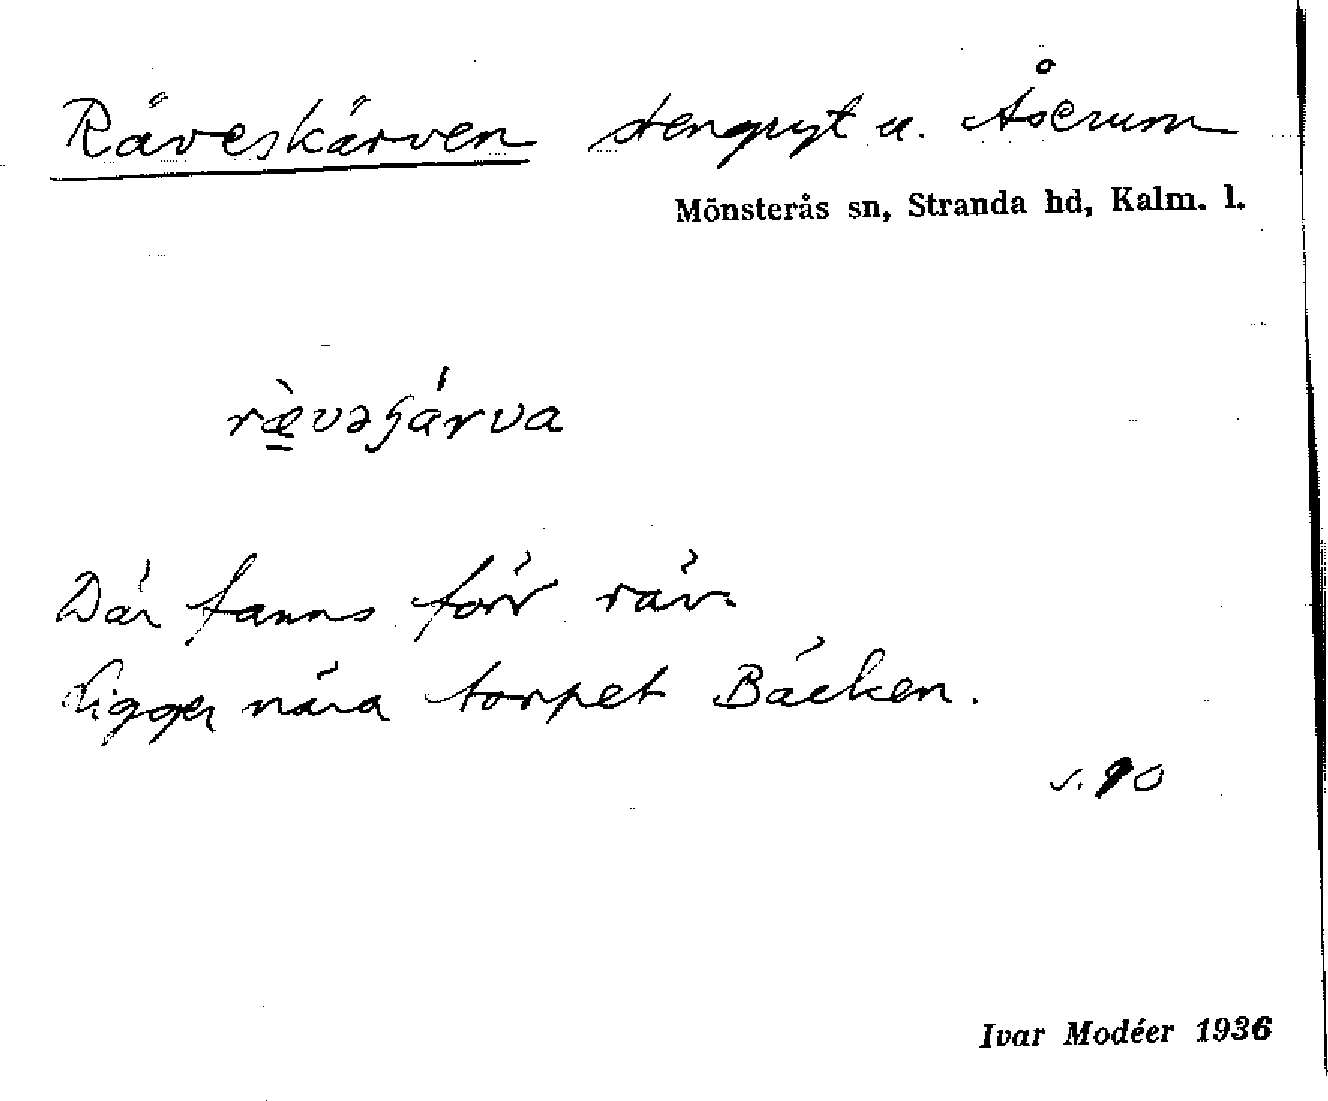 Räveskärven stengryt u. Åserum
Mönsterås sn, Stranda hd, Kalm. l.
ræ̀vəʃárva
Där fanns förr räv.
Ligger nära torpet Bäcken.
s. 90
Ivar Modéer 1936